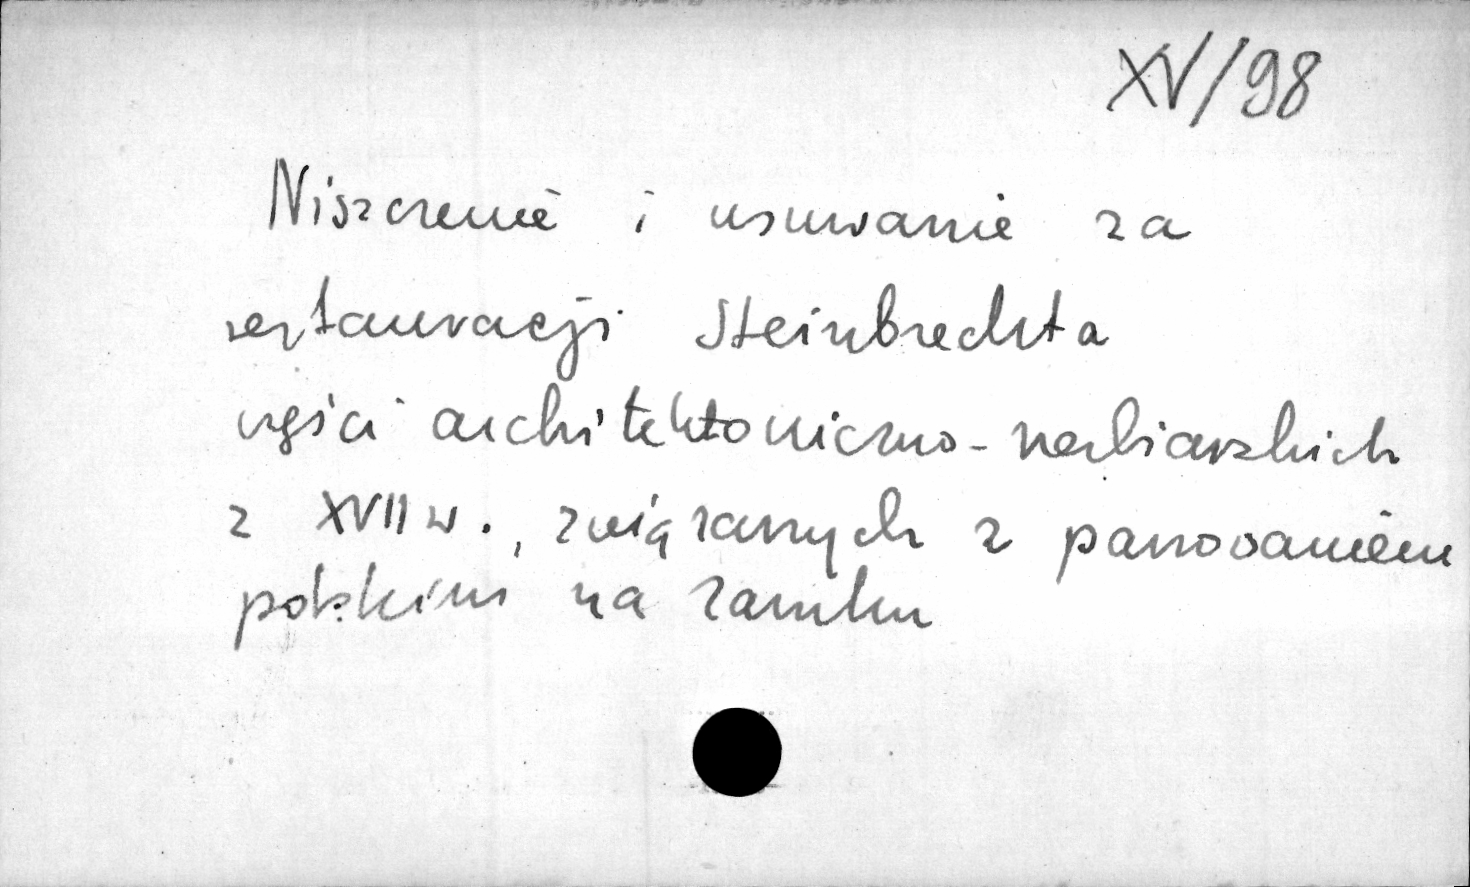 XV/98
Niszczenie i usuwanie za
restauracji Steinbrechta
części architektoniczno-rzeźbiarskich
z XVII w., związanych z panowaniem
polskim na zamku